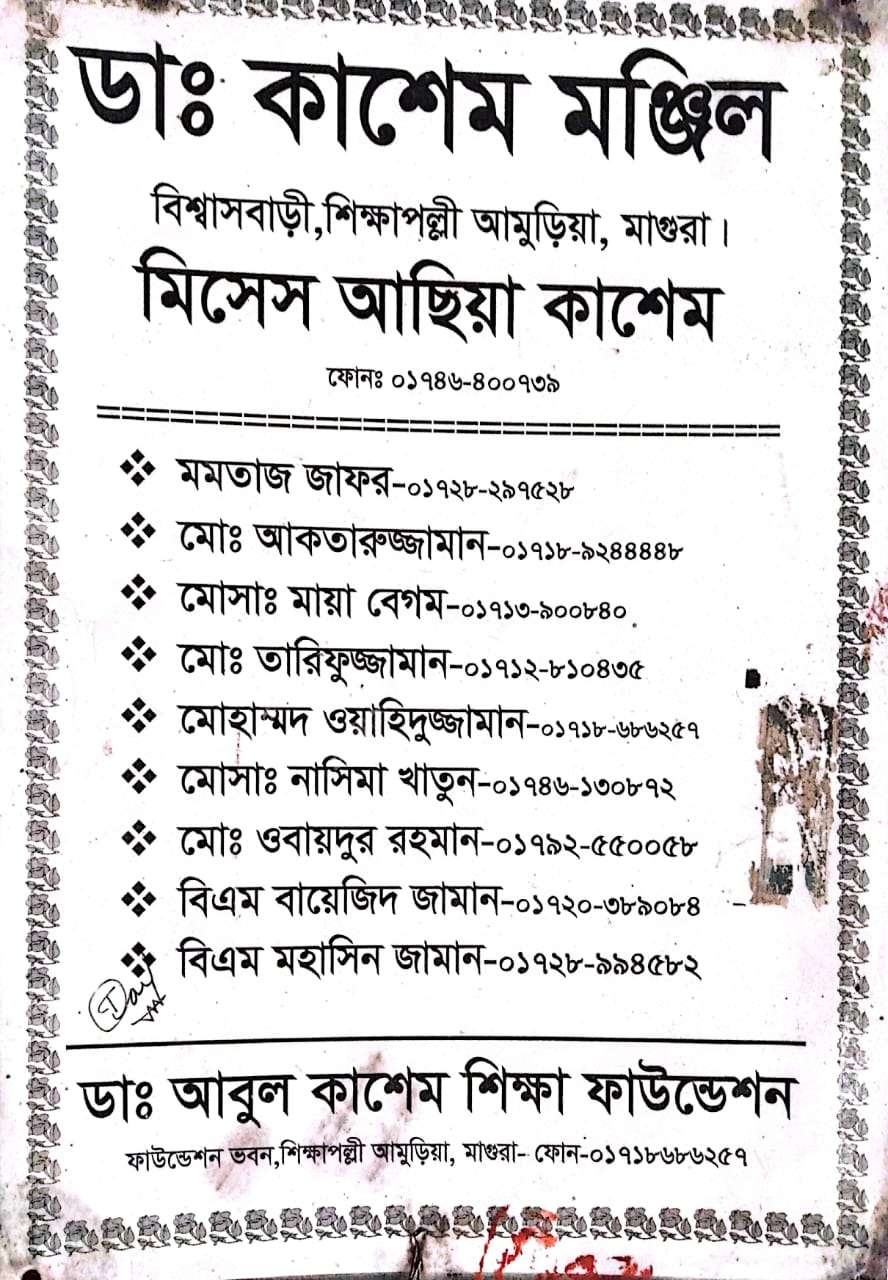 ডাঃ কাশেম মঞ্জিল
বিশ্বাসবাড়ী,শিক্ষাপল্লী আমুড়িয়া, মাগুরা।
মিসেস আছিয়া কাশেম
ফোনঃ ০১৭৪৬-৪০০৭৩৯
মমতাজ জাফর-০১৭২৮-২৯৭৫২৮
মোঃ আকতারুজ্জামান-০১৭১৮-৯২৪৪৪৮
মোসাঃ মায়া বেগম-০১৭১৩-৯০০৮৪০
মোঃ তারিফুজ্জামান-০১৭১২-৮১০৪৩৫
মোহাম্মদ ওয়াহিদুজ্জামান-০১৭১৮-৬৮৬২৫৭
মোসাঃ নাসিমা খাতুন-০১৭৪৬-১৩০৮৭২
মোঃ ওবায়দুর রহমান-০১৭৯২-৫৫০০৫৮
বিএম বায়েজিদ জামান-০১৭২০-৩৮৯০৮৪
বিএম মহাসিন জামান-০১৭২৮-৯৯৪৫৮২
ডাঃ আবুল কাশেম শিক্ষা ফাউন্ডেশন
ফাউন্ডেশন ভবন,শিক্ষাপল্লী আমুড়িয়া, মাগুরা- ফোন-০১৭১৮৬৮৬২৫৭